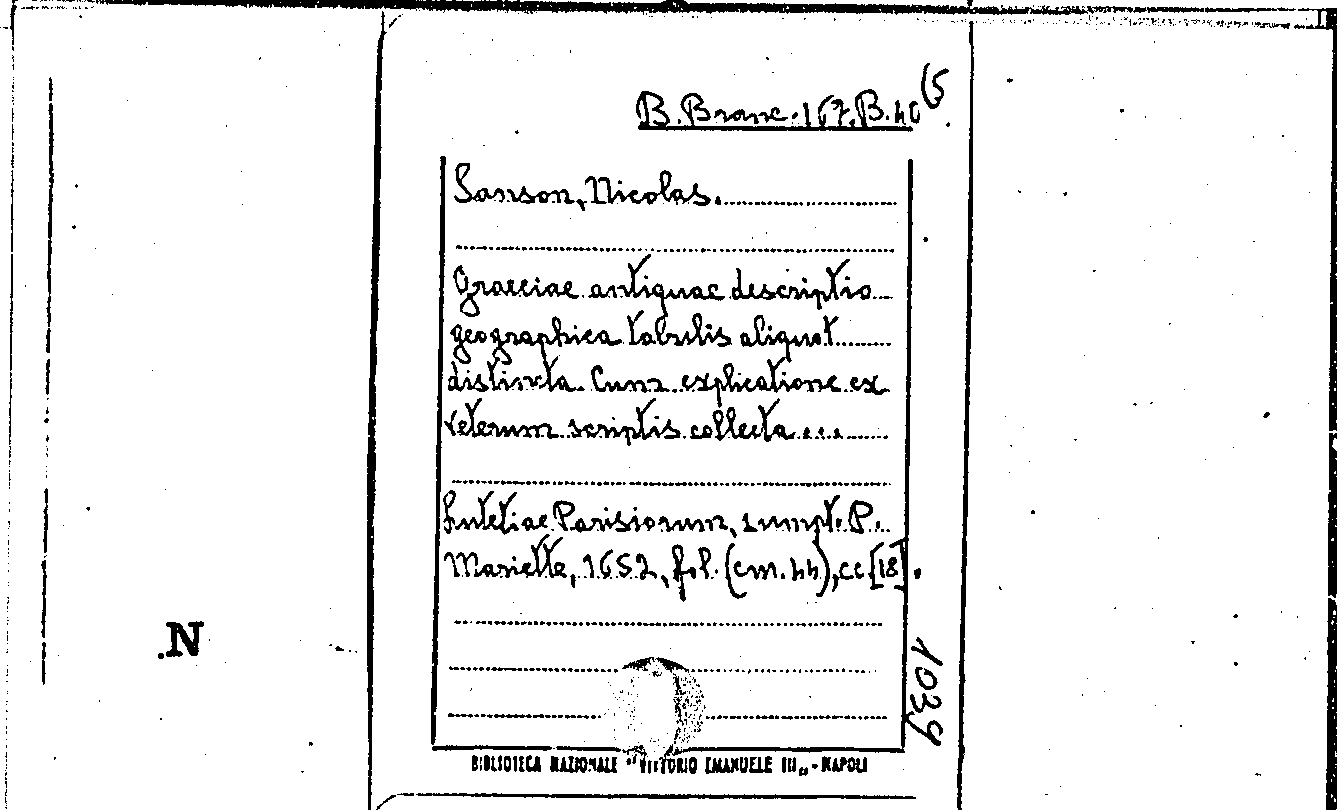 B. Branc. 167. B. 40 (5
Sanson, Nicolas.
Graeciae antiquae descriptio
geographica tabulis aliquot
distincta. Cum explicatione ex
veterum scriptis collecta ...
Lutetiae Parisiorum, sumpt. P.
Mariette, 1652, fol. (cm. 44), cc [18].
1039
.N
BIBLIOTECA NAZIONALE "VITTORIO EMANUELE III„ - NAPOLI